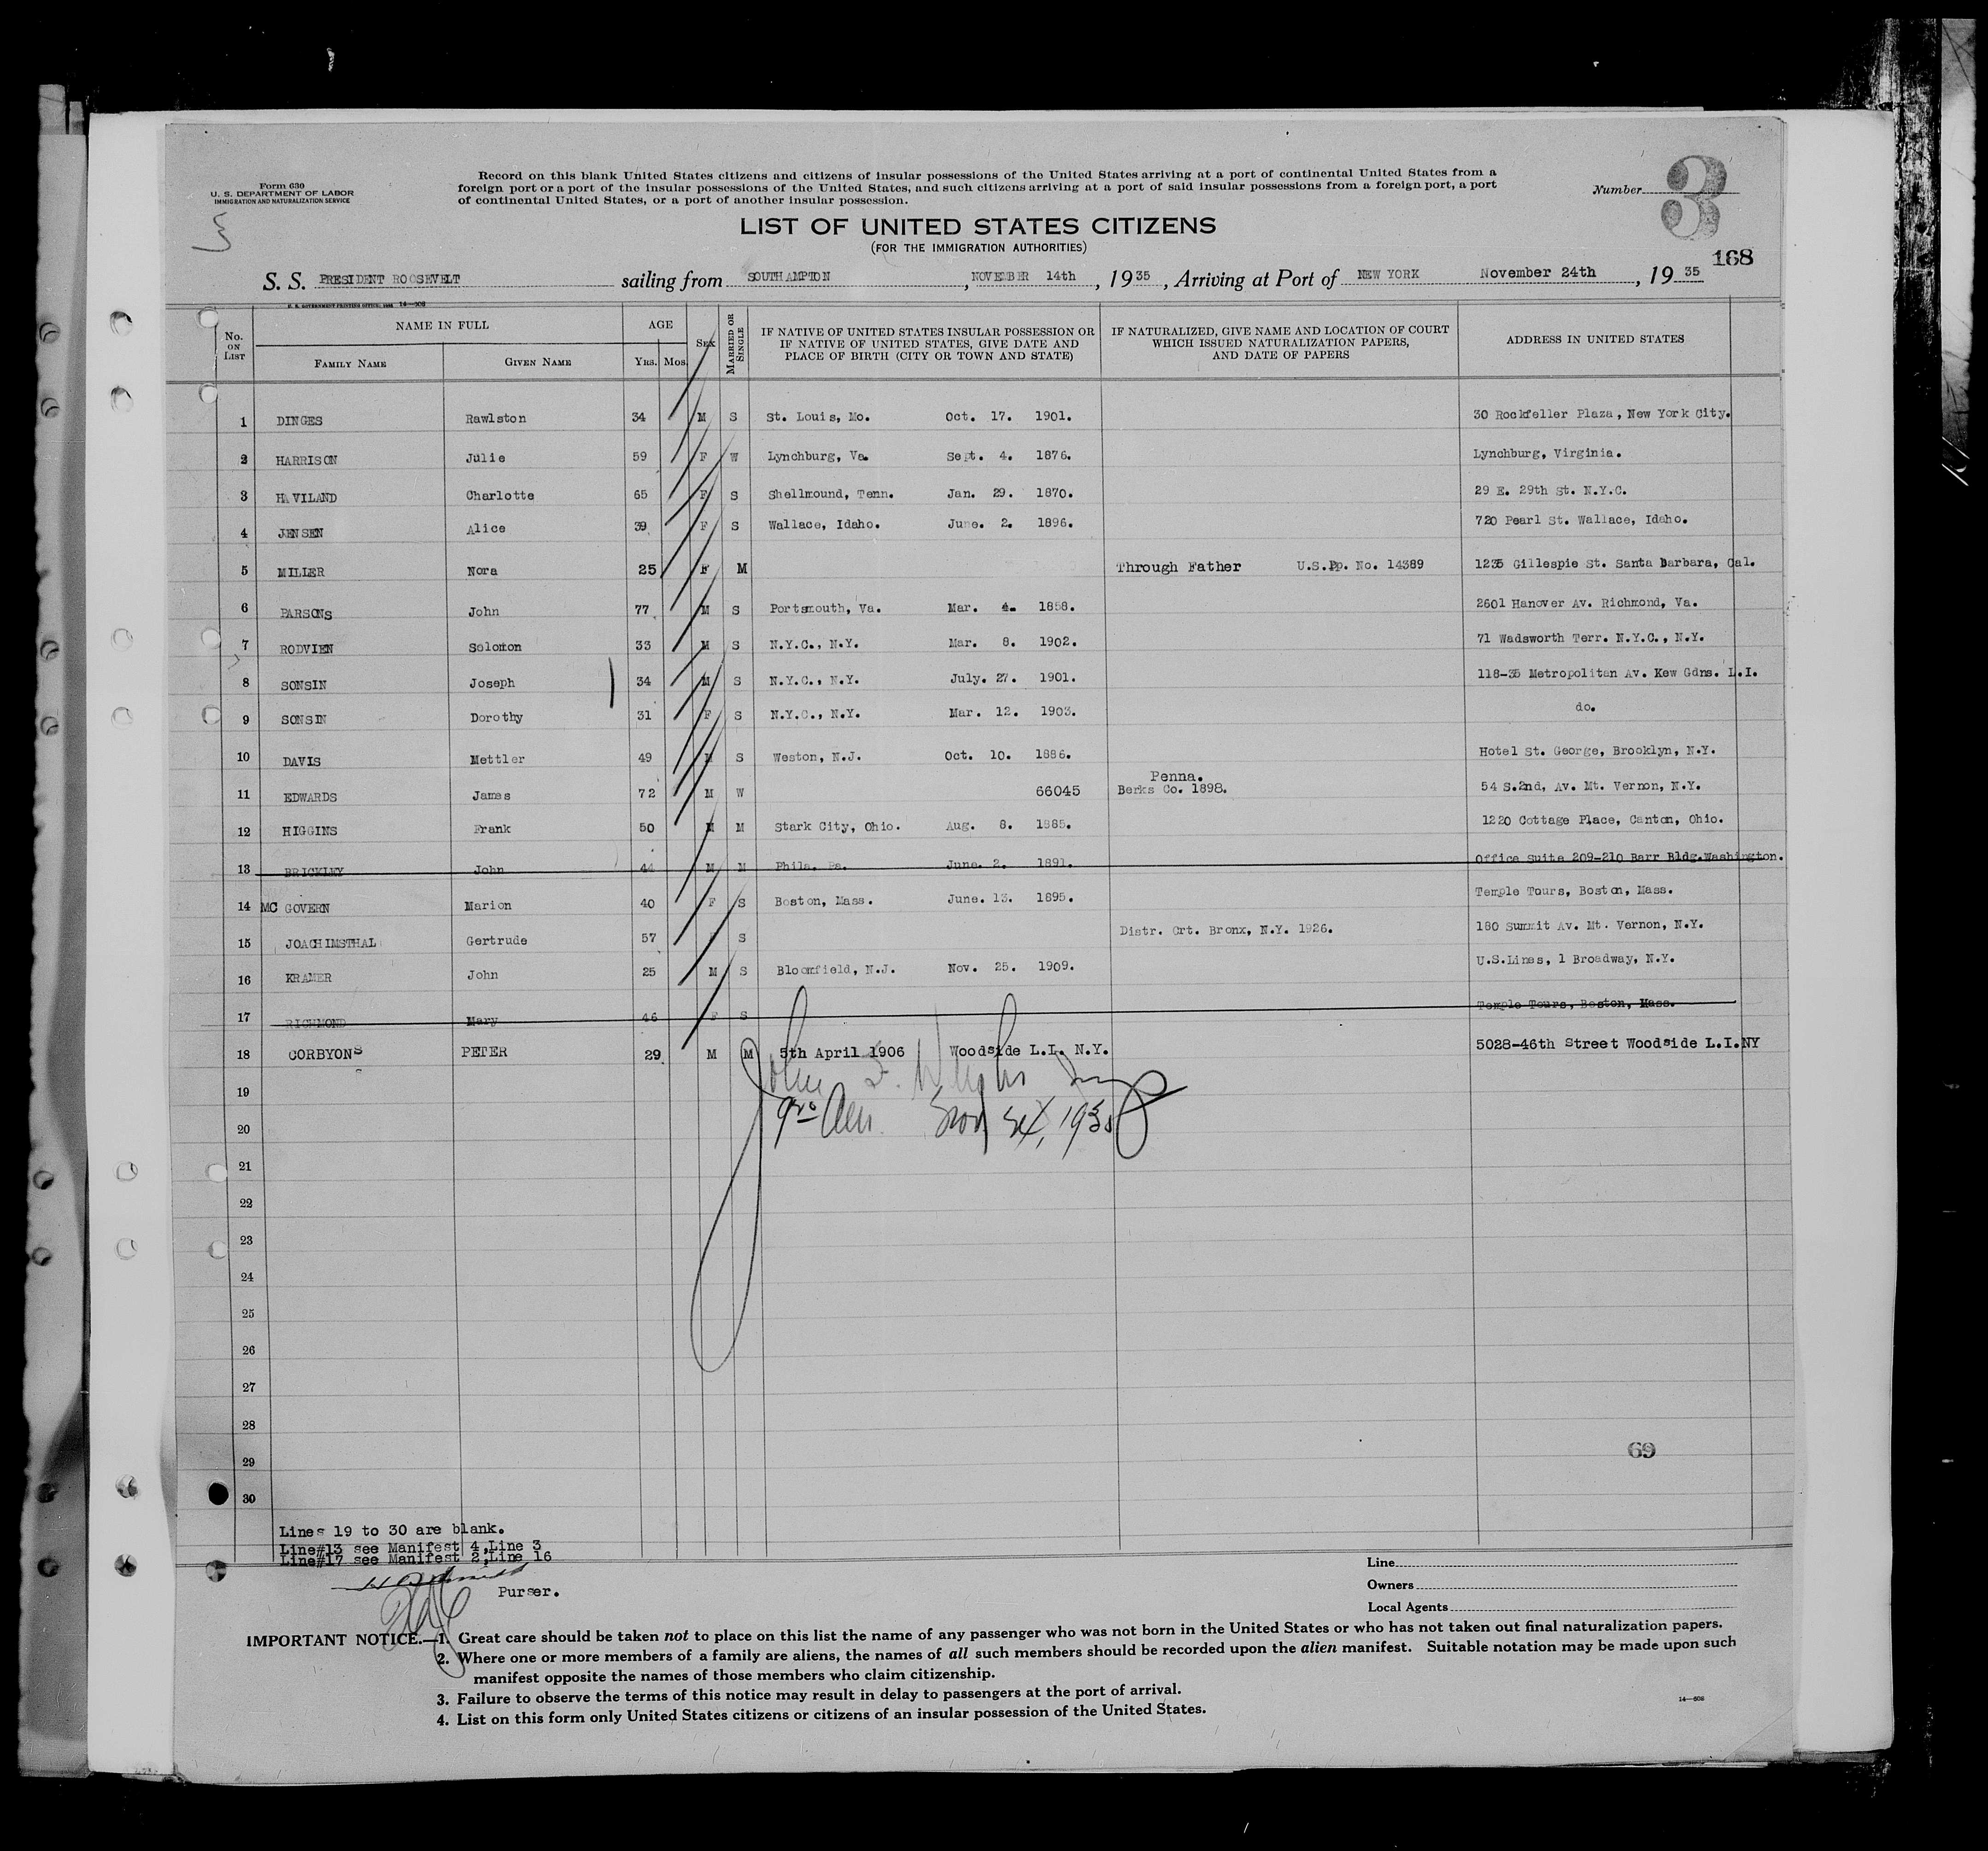 Form 630
U. S. DEPARTMENT OF LABOR
IMMIGRATION AND NATURALIZATION SERVICE
Record on this blank United States citizens and citizens of insular possessions of the United States arriving at a port of continental United States from a
foreign port or a port of the insular possessions of the United States, and such citizens arriving at a port of said insular possessions from a foreign port, a port
of continental United States, or a port of another insular possession.
Number 3
LIST OF UNITED STATES CITIZENS
(FOR THE IMMIGRATION AUTHORITIES)
168
S. S. PRESIDENT ROOSEVELT sailing from SOUTHAMPTON, NOVEMBER 14th, 1935, Arriving at Port of NEW YORK November 24th, 1935
No. ON LIST
NAME IN FULL
FAMILY NAME GIVEN NAME
AGE
YRS. MOS.
SEX
MARRIED OR SINGLE
IF NATIVE OF UNITED STATES INSULAR POSSESSION OR
IF NATIVE OF UNITED STATES, GIVE DATE AND
PLACE OF BIRTH (CITY OR TOWN AND STATE)
IF NATURALIZED, GIVE NAME AND LOCATION OF COURT
WHICH ISSUED NATURALIZATION PAPERS,
AND DATE OF PAPERS
ADDRESS IN UNITED STATES
1 DINGES Rawlston 34 M S St. Louis, Mo. Oct. 17. 1901. 30 Rockfeller Plaza, New York City.
2 HARRISON Julie 59 F W Lynchburg, Va. Sept. 4. 1876. Lynchburg, Virginia.
3 HAVILAND Charlotte 65 F S Shellmound, Tenn. Jan. 29. 1870. 29 E. 29th St. N.Y.C.
4 JENSEN Alice 39 F S Wallace, Idaho. June. 2. 1896. 720 Pearl St. Wallace, Idaho.
5 MILLER Nora 25 F M Through Father U.S.Pp. No. 14389 1235 Gillespie St. Santa Barbara, Cal.
6 PARSONs John 77 M S Portsmouth, Va. Mar. 4. 1858. 2601 Hanover Av. Richmond, Va.
7 RODVIEN Solomon 33 M S N.Y.C., N.Y. Mar. 8. 1902. 71 Wadsworth Terr. N.Y.C., N.Y.
8 SONSIN Joseph 34 M S N.Y.C., N.Y. July. 27. 1901. 118-35 Metropolitan Av. Kew Gdns. L.I.
9 SONSIN Dorothy 31 F S N.Y.C., N.Y. Mar. 12. 1903. do.
10 DAVIS Mettler 49 M S Weston, N.J. Oct. 10. 1886. Hotel St. George, Brooklyn, N.Y.
Penna.
11 EDWARDS James 72 M W 66045 Berks Co. 1898. 54 S.2nd, Av. Mt. Vernon, N.Y.
12 HIGGINS Frank 50 M M Stark City, Ohio. Aug. 8. 1885. 1220 Cottage Place, Canton, Ohio.
13 BRICKLEY John 44 M M Phila, Pa. June. 2. 1891. Office Suite 209-210 Barr Bldg.Washington.
14 MC GOVERN Marion 40 F S Boston, Mass. June. 13. 1895. Temple Tours, Boston, Mass.
15 JOACHIMSTHAL Gertrude 57 S Distr. Crt. Bronx, N.Y. 1926. 180 Summit Av. Mt. Vernon, N.Y.
16 KRAMER John 25 M S Bloomfield, N.J. Nov. 25. 1909. U.S.Lines, 1 Broadway, N.Y.
17 RICHMOND Mary 46 F S Temple Tours, Boston, Mass.
18 CORBYONS PETER 29 M M 5th April 1906 Woodside L.I. N.Y. 5028-46th Street Woodside L.I.NY
19
20 Nov 24, 1935
21
22
23
24
25
26
27
28
29 69
30
Lines 19 to 30 are blank.
Line#13 see Manifest 4,Line 3
Line#17 see Manifest 2,Line 16
Purser.
Line
Owners
Local Agents
IMPORTANT NOTICE.—1. Great care should be taken not to place on this list the name of any passenger who was not born in the United States or who has not taken out final naturalization papers.
2. Where one or more members of a family are aliens, the names of all such members should be recorded upon the alien manifest. Suitable notation may be made upon such
manifest opposite the names of those members who claim citizenship.
3. Failure to observe the terms of this notice may result in delay to passengers at the port of arrival.
4. List on this form only United States citizens or citizens of an insular possession of the United States.
14—608